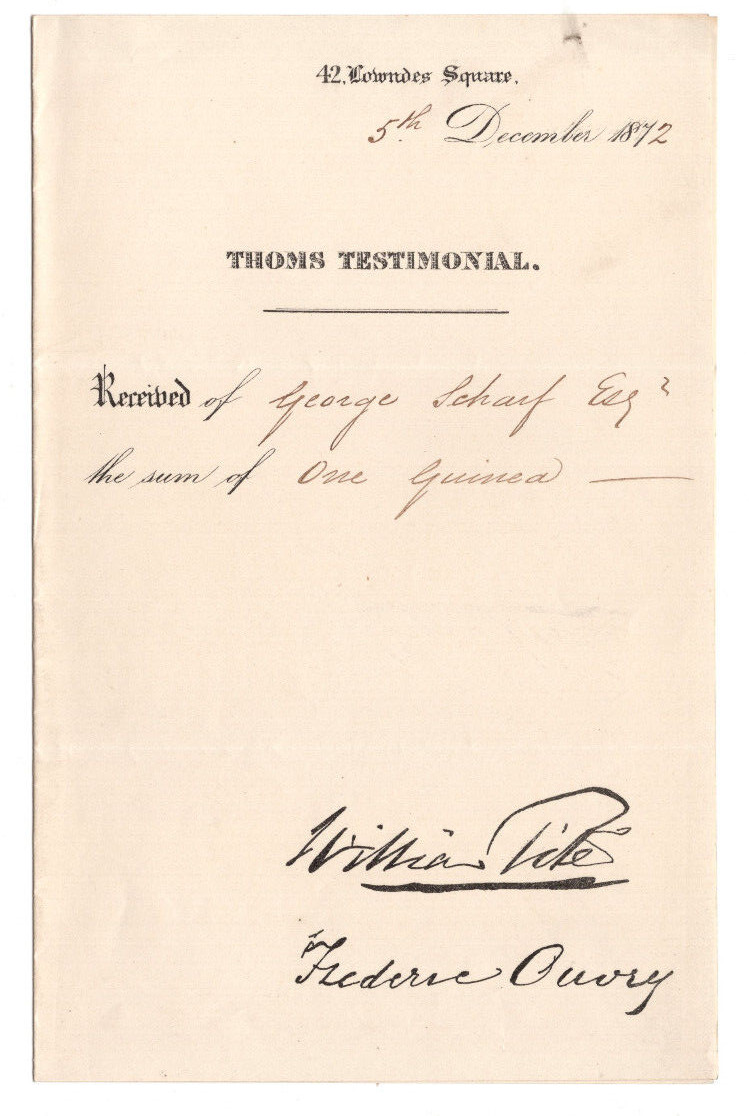 42, Lowndes Square,
5th December 1872
THOMS TESTIMONIAL.
Received of George Scharf Esqr
the sum of One Guinea —
William Tite
Frederic Ouvry